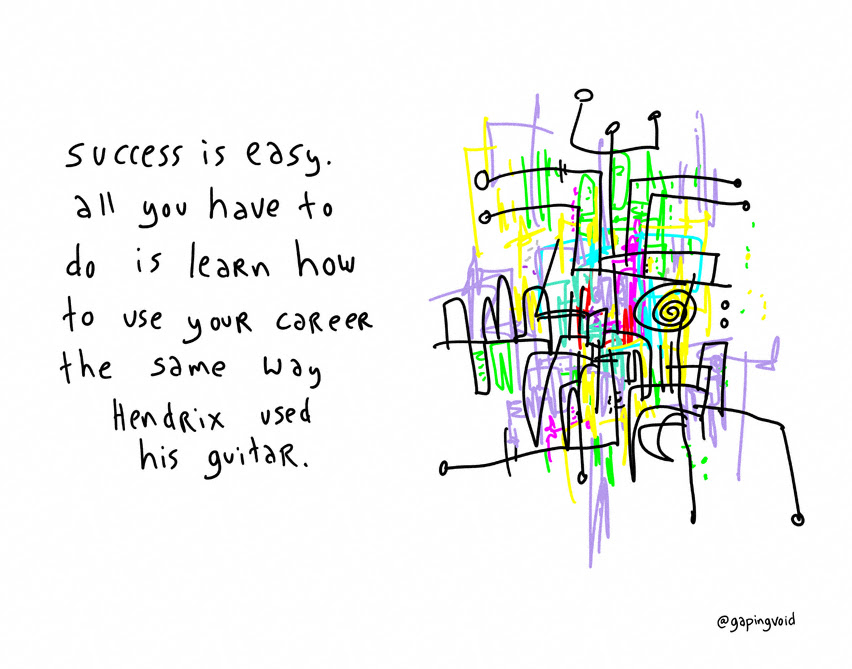 success is easy.
all you have to
do is learn how
to use your career
the same way
Hendrix used
his guitar.
@gapingvoid